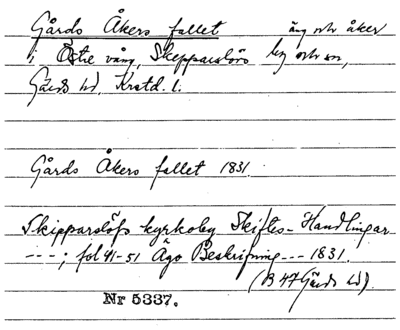 Gårds Åkers fallet äng och åker
i Östre vång, Skepparslövs by och sn,
Gärds hd. Kratd. l.
Gårds Åkers fallet 1831.
Skipparslöfs kyrkoby Skiftes-Handlingar
---; fol 41-51 Ägo Beskrifning --- 1831.
(B 47 Gärds hd).
Nr 5337.